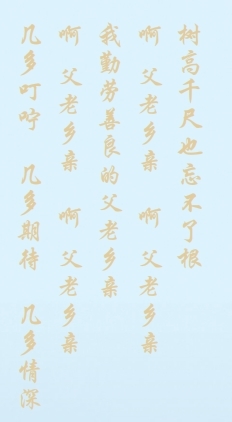 树高千尺也忘不了根
啊 父老乡亲 啊 父老乡亲
我勤劳善良的父老乡亲
啊 父老乡亲 啊 父老乡亲
几多叮咛 几多期待 几多情深